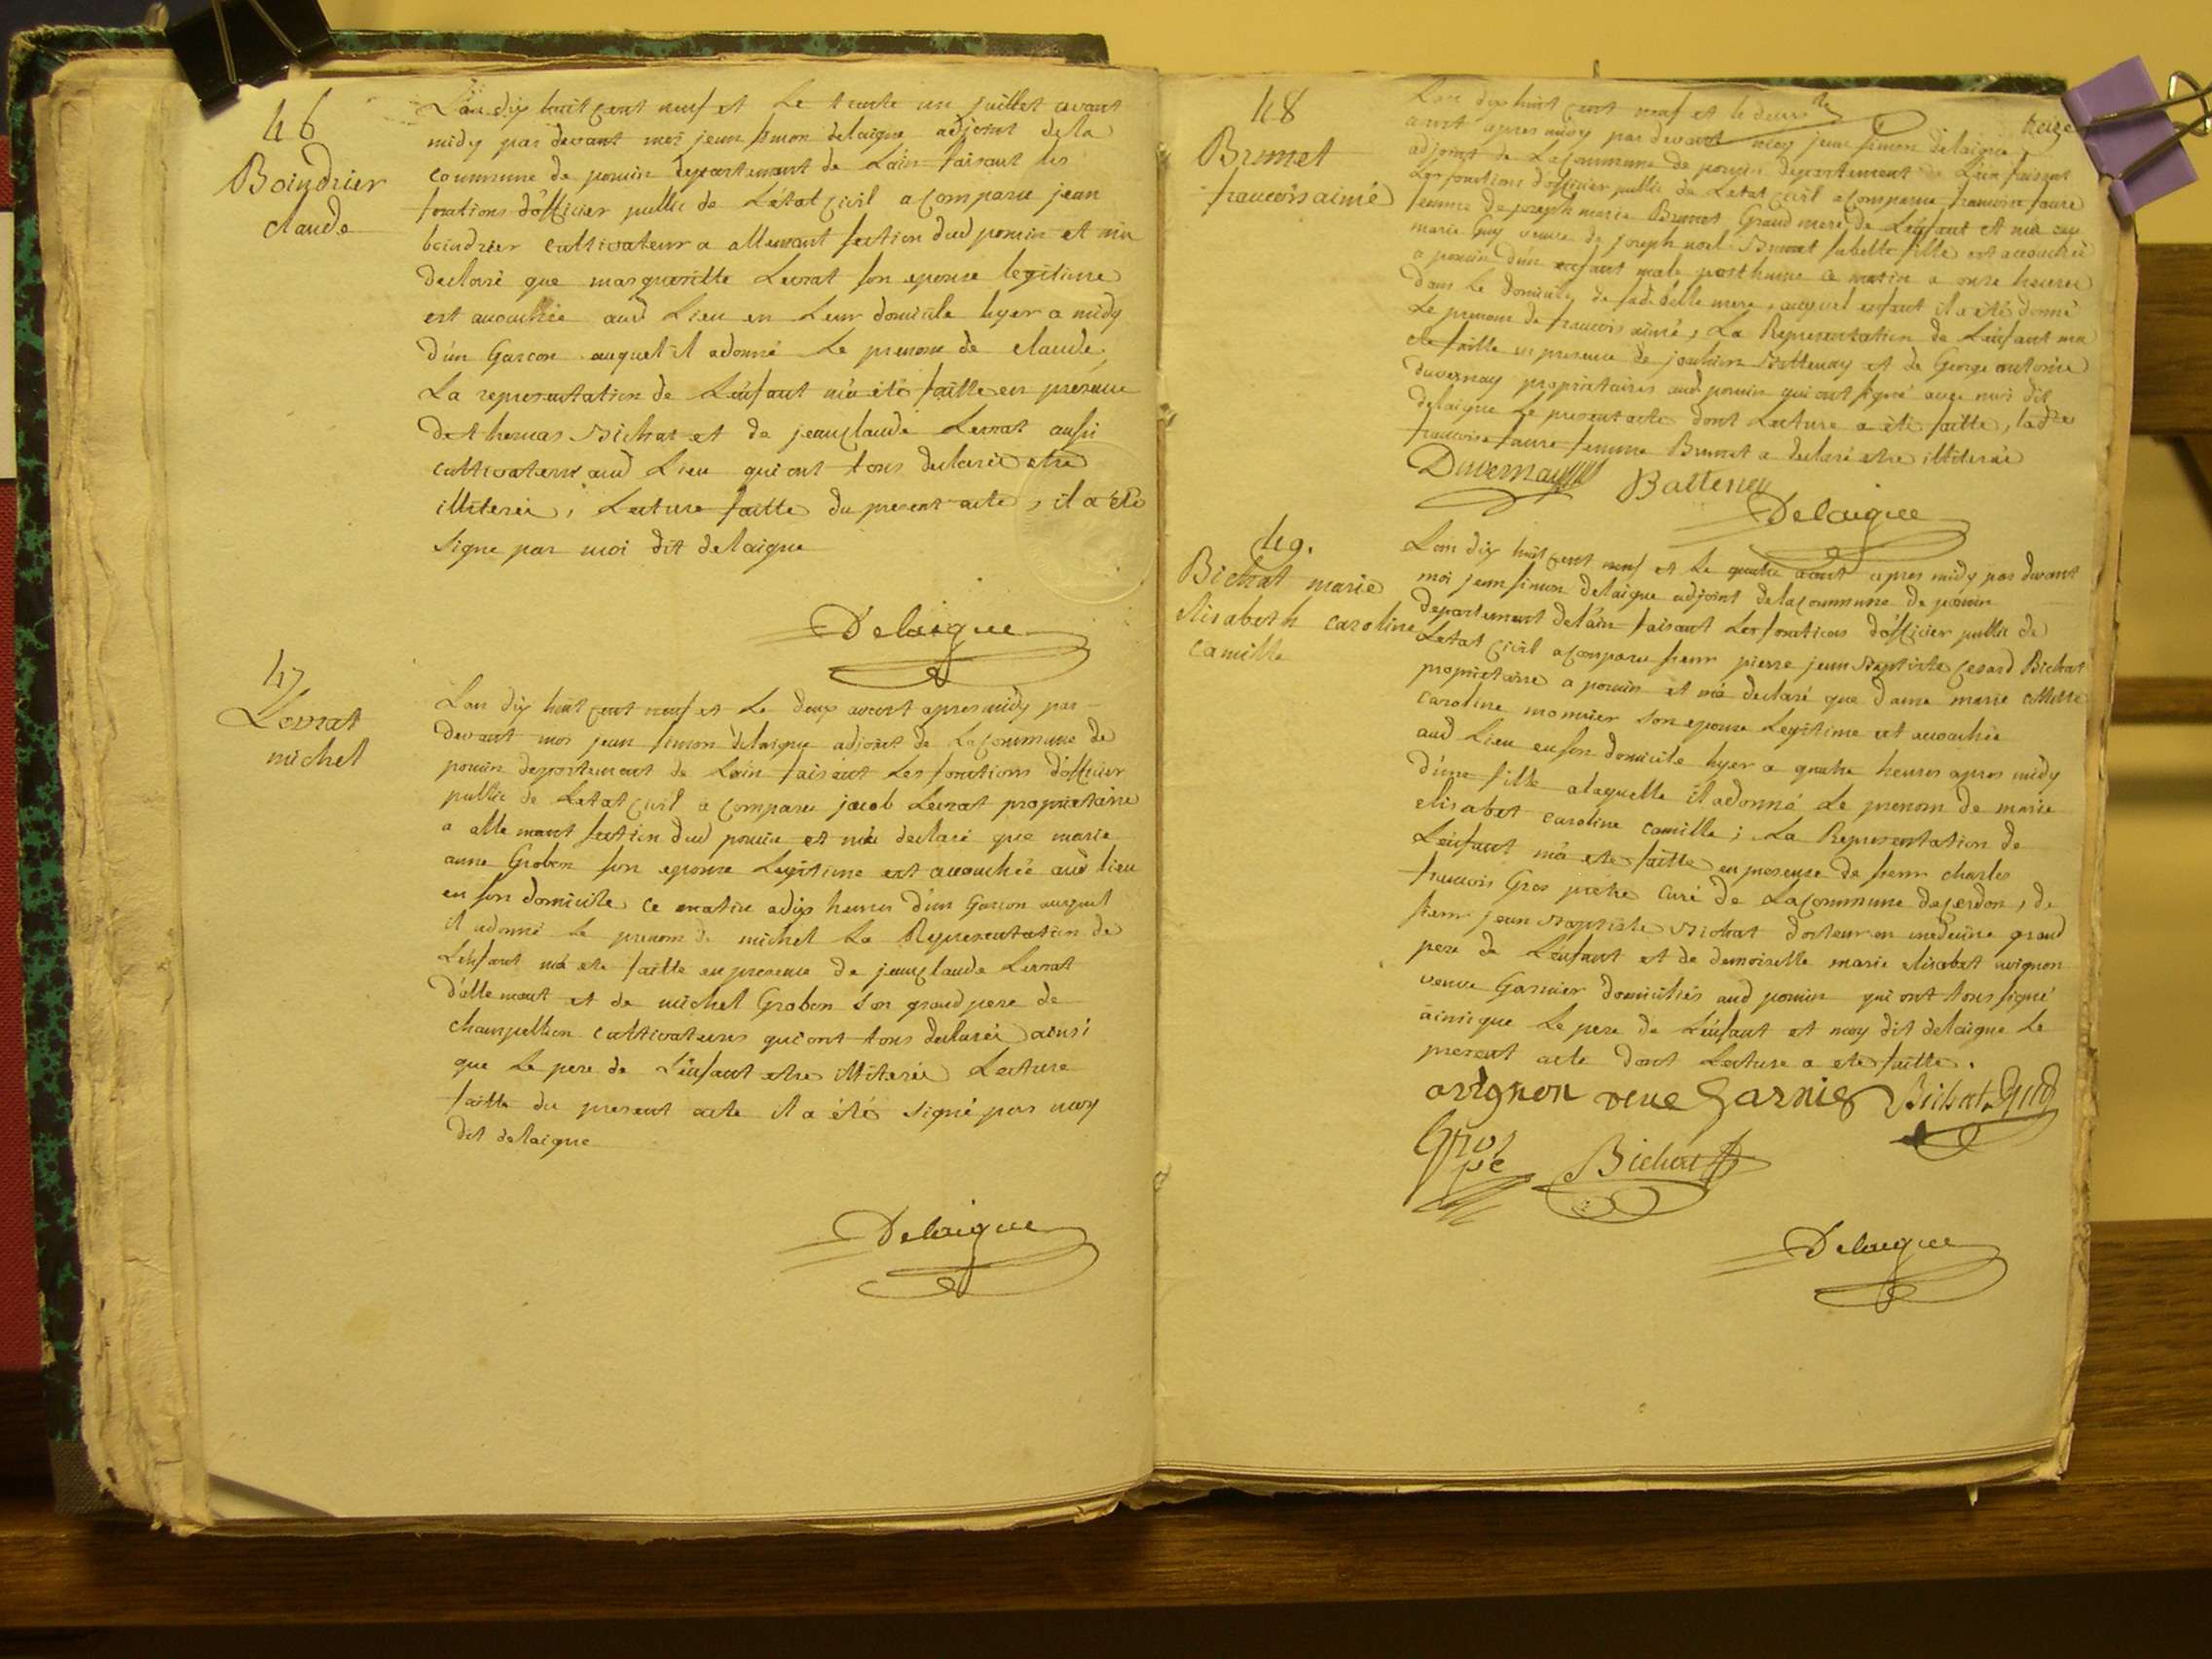 46
Boindrier
claude
L'an dix huit cent neuf et Le trente un juillet avant
midy par devant moi jean simon delaigue adjoint dela
commune de poncin departement de Lain faisant les
fonctions d'officier public de L'état civil a comparu jean
boindrier cultivateur a allemant section dud poncin et m'a
declaré que margueritte Levrat son epouse legitime
est accouchée aud Lieu en Leur domicile hyer a midy
d'un Garcon auquel il adonné Le prenom de claude,
La representation de L'enfant m'a été faitte en presence
de thomas Bichat et de jean claude Levrat aussi
cultivateurs aud Lieu qui ont tous declaré etre
illiterés, Lecture faitte du present acte, il a été
signé par moi dit delaigue
Delaigue
47
Levrat
michel
L'an dix huit cent neuf et Le deux aoust apres midy par-
devant moi jean simon delaigue adjoint de La commune de
poncin departement de Lain faisant Les fonctions d'officier
public de Letat civil a comparu jacob Levrat propriétaire
a allemant section dud poncin et m'a declaré que marie
anne Grobon son epouse Legitime est accouchée aud lieu
en son domicile ce matin a dix heures d'un Garcon auquel
il adonné Le prenom de michel La Representation de
L'enfant m'a eté faitte en presence de jean claude Levrat
d'allemant et de michel Grobon son grand pere de
champellion cultivateurs qui ont tous declarés ainsi
que Le pere de L'enfant etre illiterés Lecture
faitte du present acte il a été signé par moy
dit delaigue
Delaigue
treize
48
Brunet
francois aimé
L'an dix huit cent neuf et le deux
aout apres midy par devant moy jean simon delaigue
adjoint de La commune de poncin departement de Lain faisant
Les fonctions d'officier public de Letat civil a comparu francoise faure
femme de joseph marie Brunet Grand mere de L'enfant et m'a
marie Guy veuve de joseph noel Brunet sa belle fille est accouchée
a poncin d'un enfant male posthume ce matin a onze heures
dans Le domicile de sad belle mere, auquel enfant il a été donné
Le prenom de francois aimé, La Representation de L'enfant ma
ete faitte en presence de joachim Batteney et de George antoine
duvernay propriétaires aud poncin qui ont signé avec moi dit
delaigue Le present acte dont Lecture a été faitte, ladte
francoise faure femme Brunet a declaré etre illiterée
Duvernay Batteney
Delaigue
49.
Bichat marie
elisabeth caroline
camille
L'an dix huit cent neuf et Le quatre aout apres midy par devant
moi jean simon delaigue adjoint dela commune de poncin
departement de L'ain faisant Les fonctions d'officier public de
Letat civil a comparu sieur pierre jean Baptiste Cesard Bichat
propriétaire a poncin et m'a declaré que dame marie
caroline monnier son epouse Legitime est accouchée
aud Lieu en son domicile hyer a quatre heures apres midy
d'une fille a laquelle il adonné Le prenom de marie
elisabet caroline camille; La Representation de
L'enfant m'a eté faitte en presence de sieur charles
francois Gros prêtre curé de La commune de cerdon, de
sieur jean Baptiste Bichat docteur en medecine grand
pere de L'enfant et de demoiselle marie elisabet avignon
veuve Garnier domiciliés aud poncin qui ont tous signé
ainsi que Le pere de L'enfant et moy dit delaigue Le
present acte dont Lecture a eté faitte.
avignon veve Garnier Bichat
Gros
Bichat
Delaigue